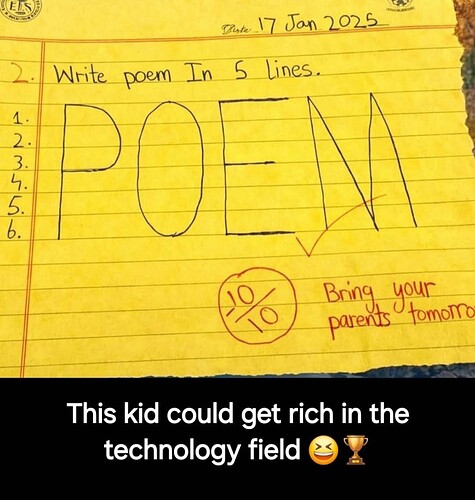 ELS
Date 17 Jan 2025
2. Write poem In 5 lines.
1.
2.
3.
4.
5.
6.
POEM
-10/10
Bring your
parents tomorro
This kid could get rich in the
technology field 😆🏆